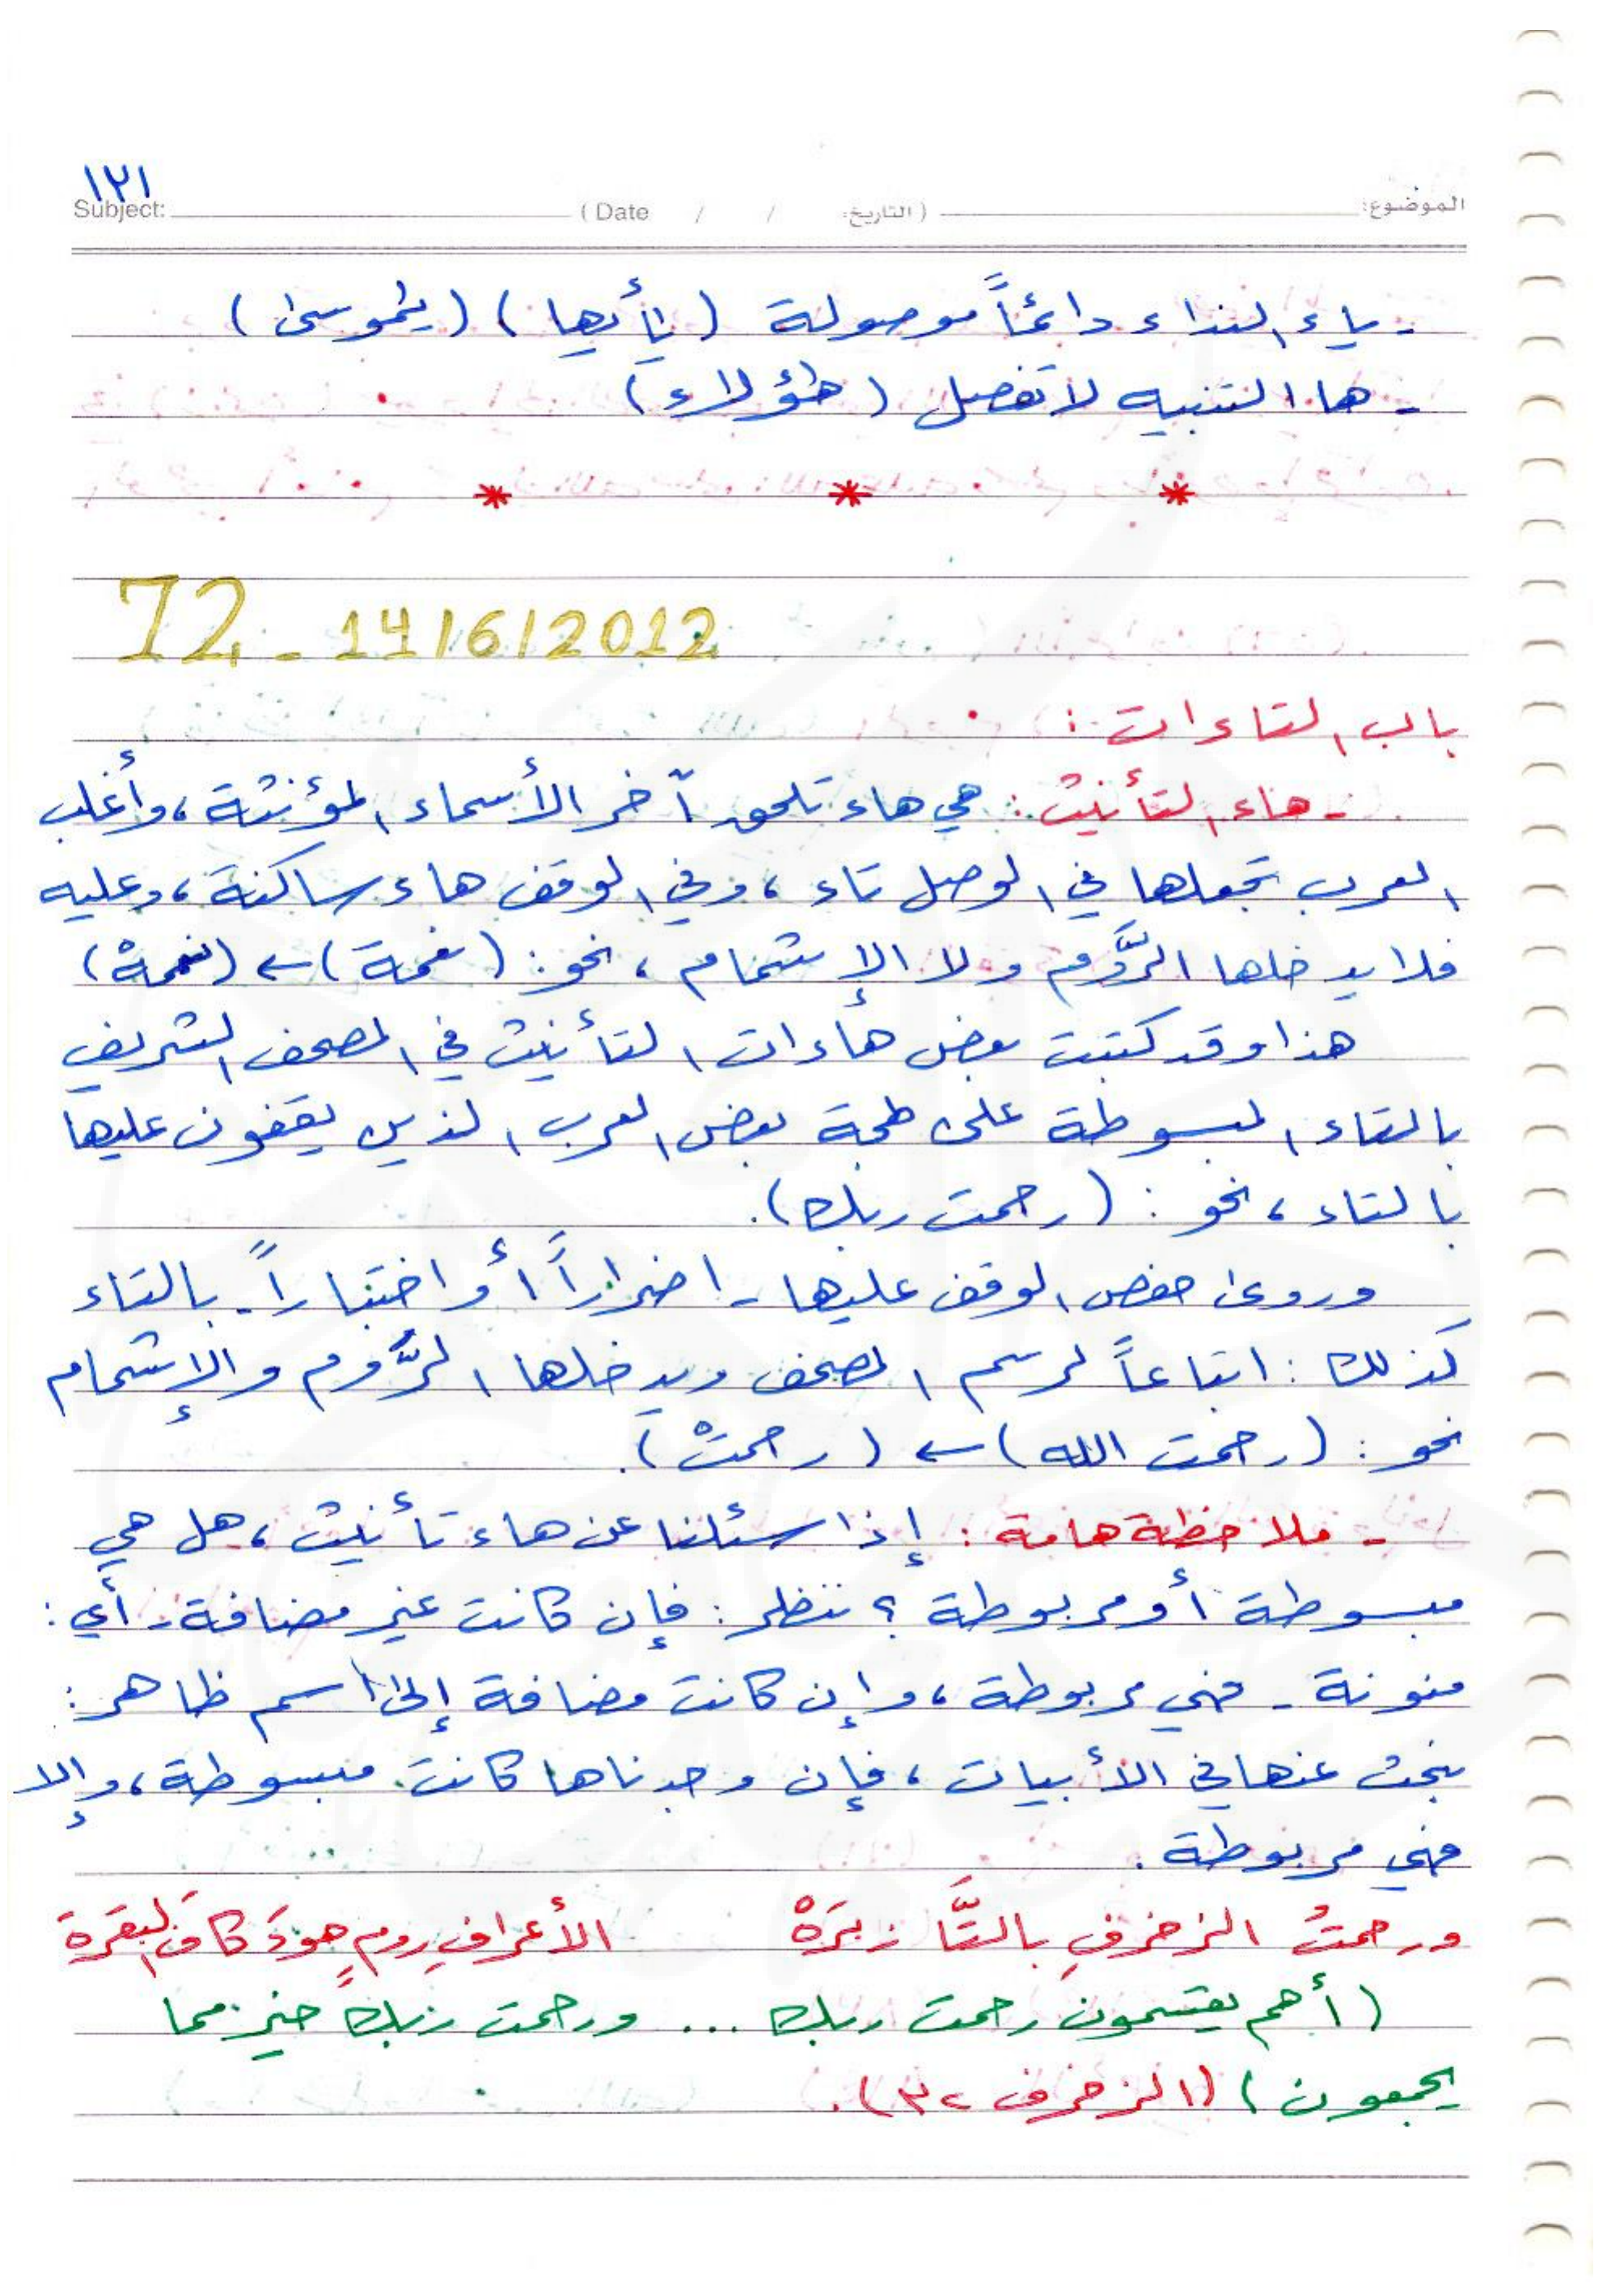 ١٢١
الموضوع: (التاريخ: / / Date) Subject:
- ياء النداء دائماً موصولة (يٰأيها) (يٰموسىٰ)
- ها التنبيه لا تفصل (هٰؤلاء)
* * *
72 - 14/6/2012
باب التاءات:
- هاء التأنيث: هي هاء تلحق آخر الأسماء المؤنثة، وأغلب
العرب تجعلها في الوصل تاء، وفي الوقف هاء ساكنة، وعليه
فلا يدخلها الرَّوم ولا الإشمام، نحو: (نعمة) ← (نعمهْ)
هذا وقد كتبت بعض هاءات التأنيث في المصحف الشريف
بالتاء المبسوطة على لهجة بعض العرب الذين يقفون عليها
بالتاء، نحو: (رحمت ربك).
وروى حفص الوقف عليها - اضراراً أو اختباراً - بالتاء
كذلك: اتباعاً لرسم المصحف ويدخلها الرَّوم والإشمام
نحو: (رحمت الله) ← (رحمتْ).
- ملاحظة هامة: إذا سئلنا عن هاء تأنيث، هل هي
مبسوطة أو مربوطة؟ ننظر: فإن كانت غير مضافة - أي:
منونة - فهي مربوطة، وإن كانت مضافة إلى اسم ظاهر:
نبحث عنها في الأبيات، فإن وجدناها كانت مبسوطة، وإلا
فهي مربوطة.
ورحمتُ الزخرفِ بالتَّا زبَرَهْ الأعرافِ رومٍ هودَ كافَ البقرة
(أهم يقسمون رحمت ربك ... ورحمت ربك خير مما
يجمعون) (الزخرف ٣٢).